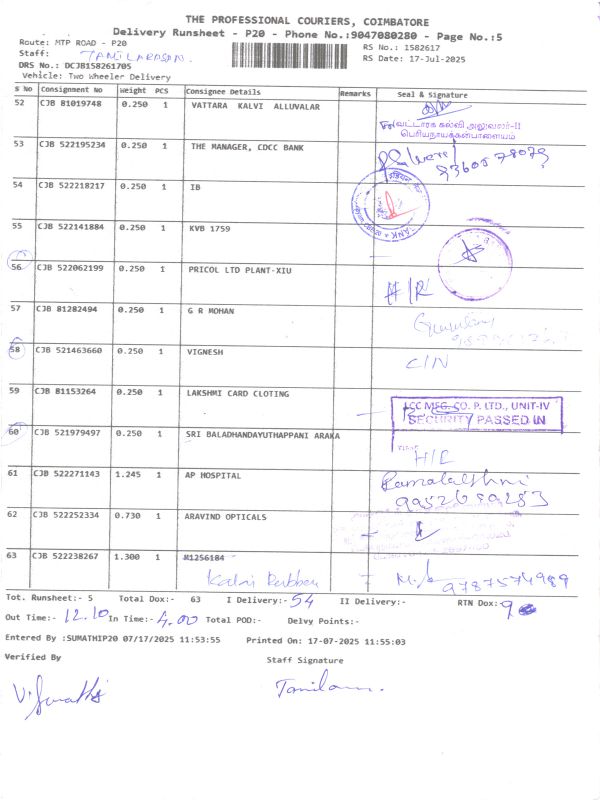 THE PROFESSIONAL COURIERS, COIMBATORE
Delivery Runsheet - P20 - Phone No.:9047080280 - Page No.:5
Route: MTP ROAD - P20 RS No.: 1582617
Staff: TAMILARASAN. RS Date: 17-Jul-2025
DRS No.: DCJB158261705
Vehicle: Two Wheeler Delivery
S No Consignment No Weight PCS Consignee Details Remarks Seal & Signature
52 CJB 81019748 0.250 1 VATTARA KALVI ALLUVALAR
வட்டாரக் கல்வி அலுவலர்-II
பெரியநாயக்கன்பாளையம்
53 CJB 522195234 0.250 1 THE MANAGER, CDCC BANK
54 CJB 522218217 0.250 1 IB
55 CJB 522141884 0.250 1 KVB 1759
56 CJB 522062199 0.250 1 PRICOL LTD PLANT-XIU
57 CJB 81282494 0.250 1 G R MOHAN
58 CJB 521463660 0.250 1 VIGNESH C/N
59 CJB 81153264 0.250 1 LAKSHMI CARD CLOTING
LCC MFG. CO. P. LTD., UNIT-IV
SECURITY PASSED IN
60 CJB 521979497 0.250 1 SRI BALADHANDAYUTHAPPANI ARAKA
TIME
61 CJB 522271143 1.245 1 AP HOSPITAL
62 CJB 522252334 0.730 1 ARAVIND OPTICALS
63 CJB 522238267 1.300 1 M1256184
9787574989
Tot. Runsheet:- 5 Total Dox:- 63 I Delivery:- 54 II Delivery:- RTN Dox:- 9
Out Time:- 12.10 In Time:- 4.00 Total POD:- Delvy Points:-
Entered By :SUMATHIP20 07/17/2025 11:53:55 Printed On: 17-07-2025 11:55:03
Verified By Staff Signature